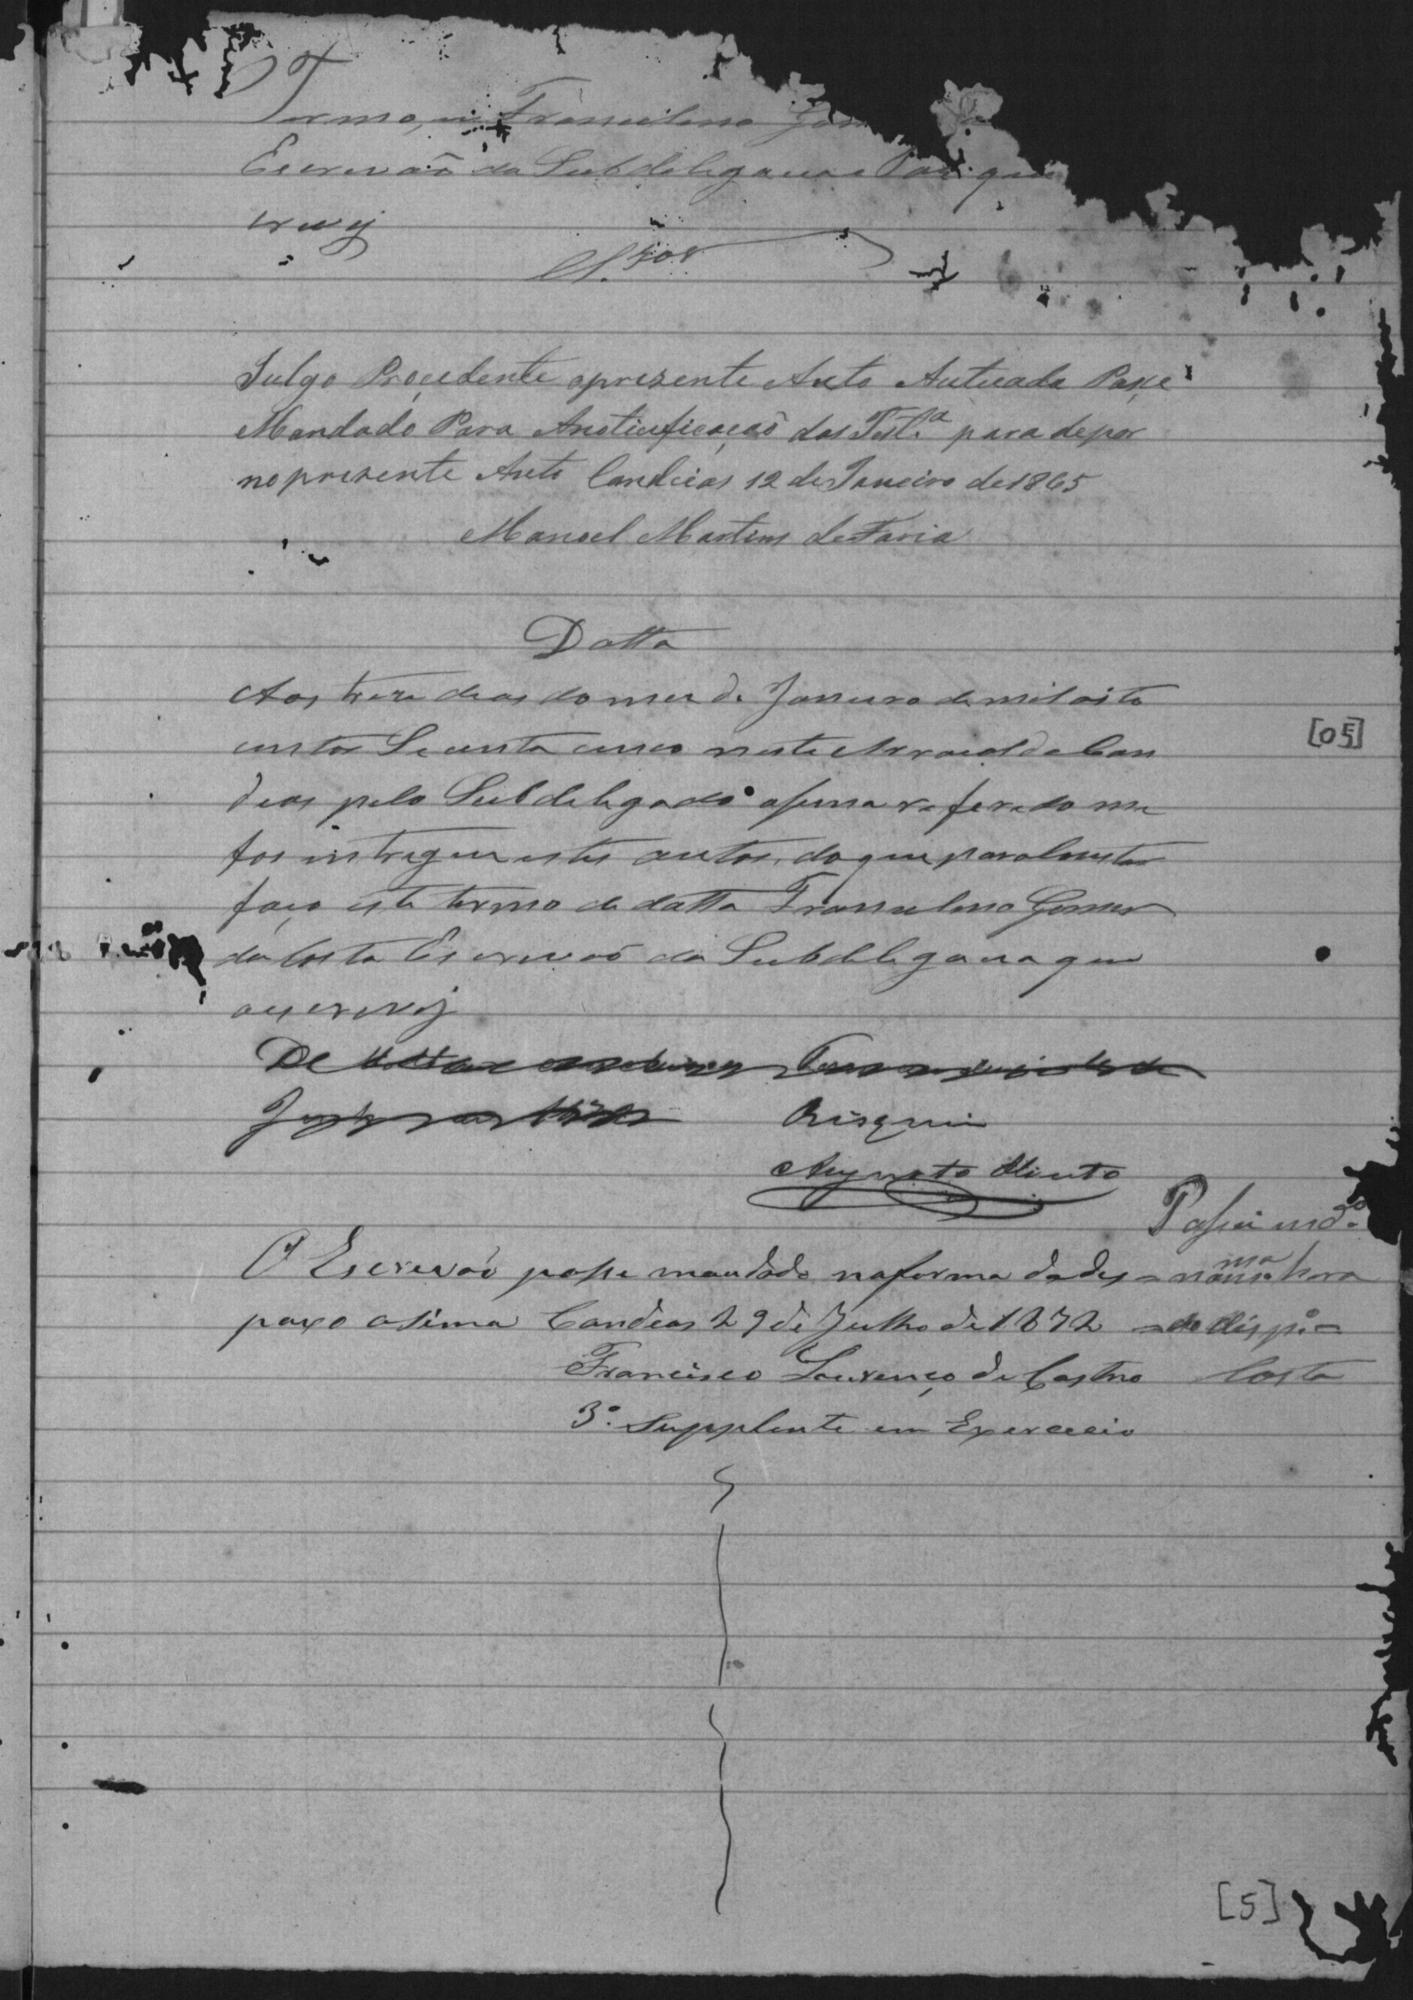 Termo, eu Francelino Gom
Escrivaõ da Subdelegacia e Paz que
crevy
Julgo Procedente apresente Auto Autuada Pase
Mandado Para Anotieficacaõ das Test.ª para depor
no prezente Auto Candeias 12 de Janeiro de 1865
Manoel Martins de Faria
Datta
Aos treze dias do mez de Janeiro de mil oito
centos Secenta cinco neste Arraial de Can
deas pelo Subdelegado asima referido me
fos intregue estes autos, do que para Constar
faço este termo de datta Francelino Gomes
da Costa Escrivaõ da Subdelegacia que
aescrevy
[05]
De
Augusto
Pasei md.º
O Escrivaõ passe mandado na forma do des
paxo asima Candeas 29 de Julho de 1872
na mesma hora
Francisco Lourenço de Castro
Costa
3.º Supplente em Exercicio
[5]